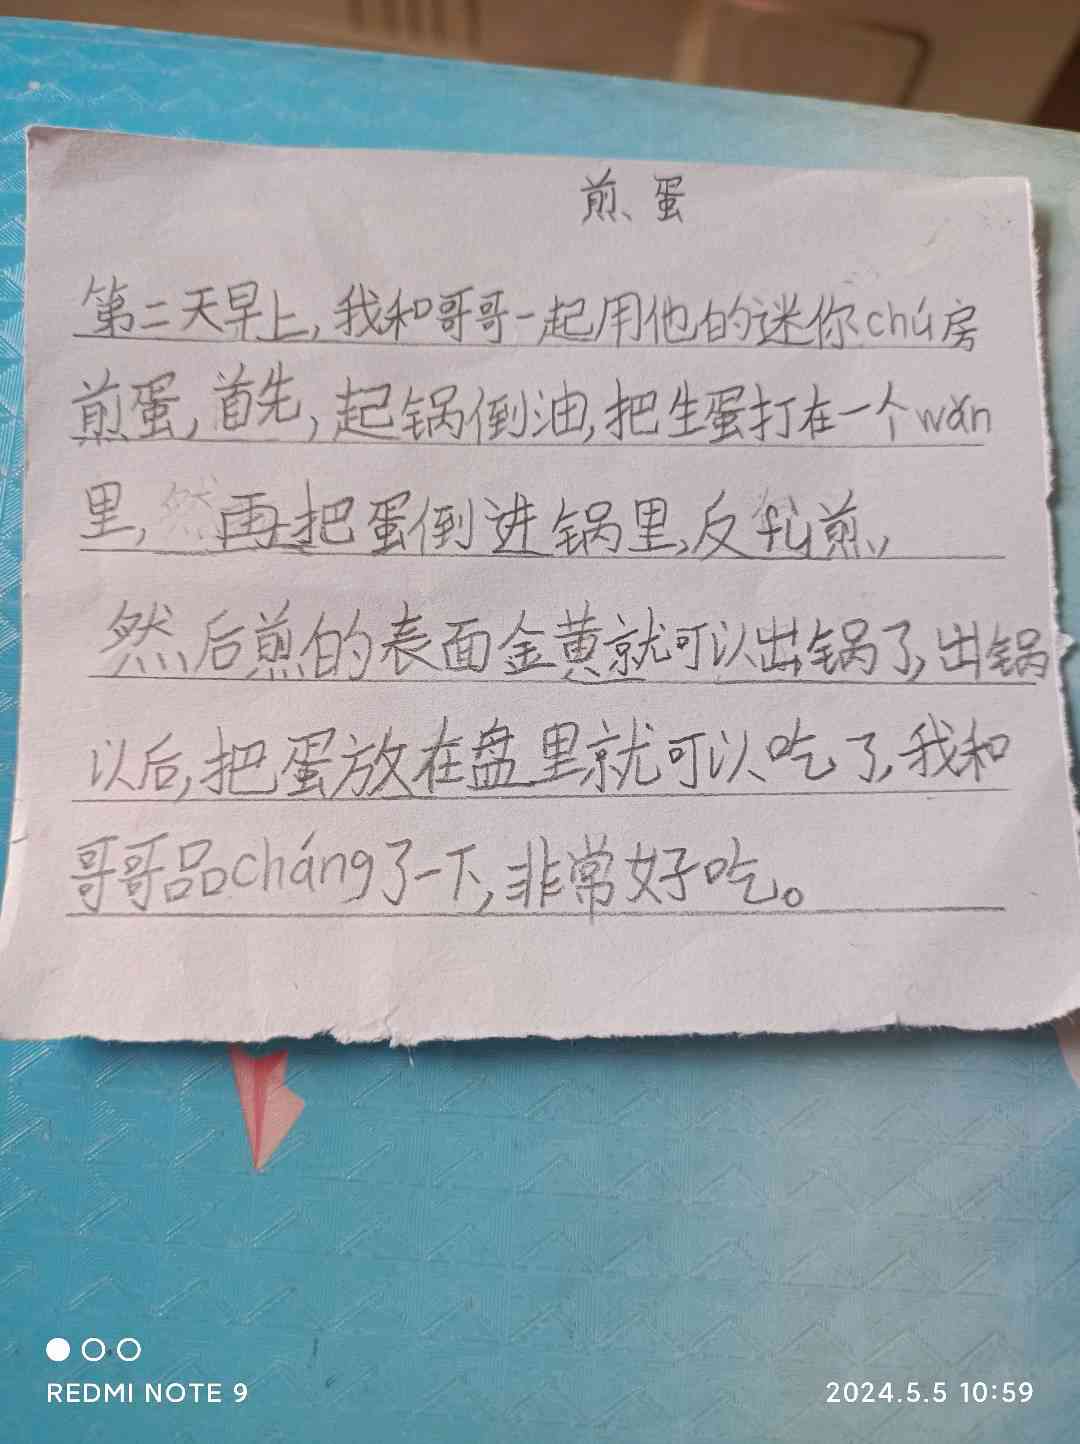 煎蛋
第二天早上,我和哥哥一起用他的迷你chú房
煎蛋,首先,起锅倒油,把生蛋打在一个wǎn
里,然再把蛋倒进锅里,反煎,
然后煎的表面金黄就可以出锅了,出锅
以后,把蛋放在盘里就可以吃了,我和
哥哥品cháng了一下,非常好吃。
REDMI NOTE 9
2024.5.5 10:59